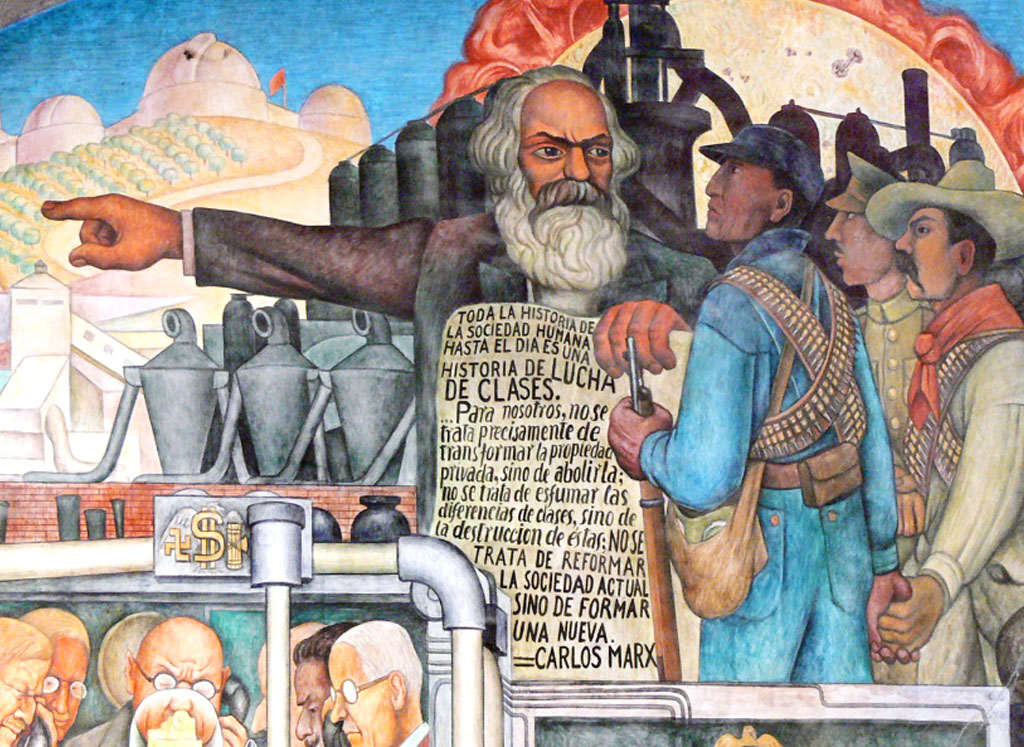 TODA LA HISTORIA DE
LA SOCIEDAD HUMANA
HASTA EL DIA ES UNA
HISTORIA DE LUCHA
DE CLASES.
...Para nosotros, no se
trata precisamente de
transformar la propiedad
privada, sino de abolirla;
no se trata de esfumar las
diferencias de clases, sino de
la destruccion de éstas; NO SE
TRATA DE REFORMAR
LA SOCIEDAD ACTUAL
SINO DE FORMAR
UNA NUEVA.
=CARLOS MARX
$